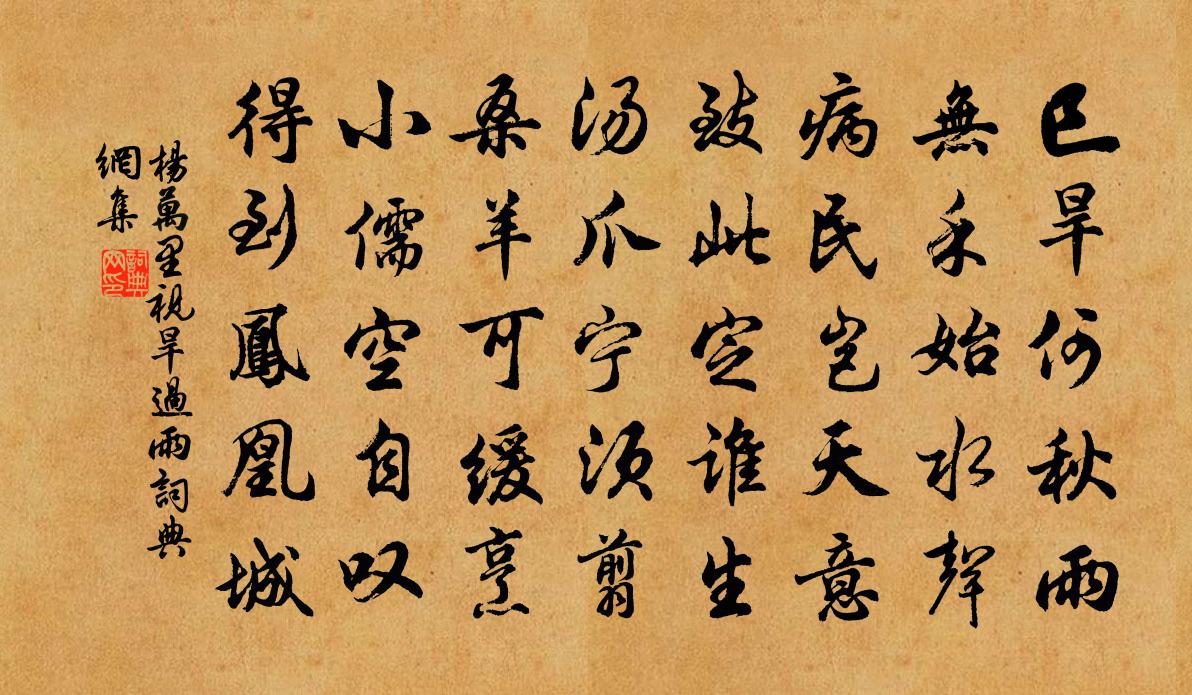 已旱何秋雨
無禾始水聲
病民豈天意
致此定誰生
汤爪宁须翦
桑羊可缓烹
小儒空自叹
得到鳳凰城
楊萬里視旱過雨詞典
網集
詞典
网印